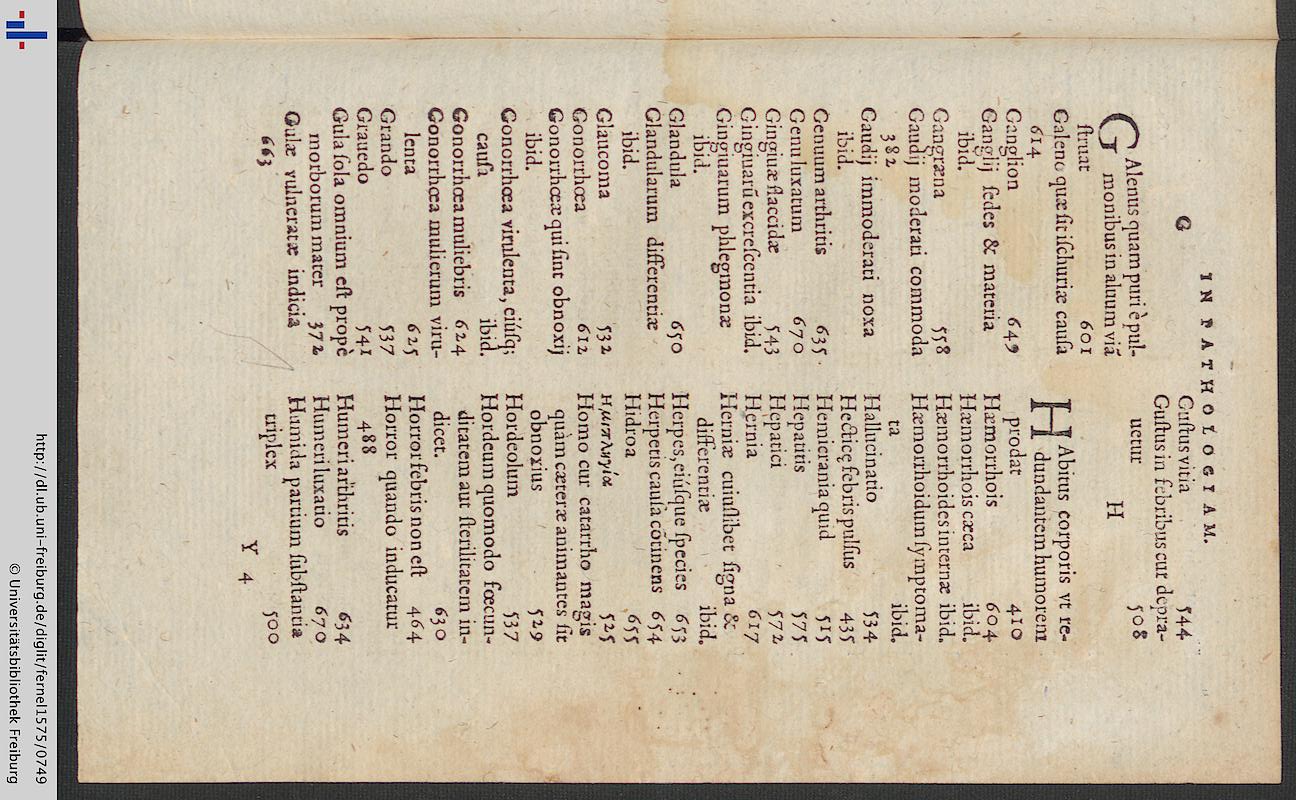 IN PATHOLOGIAM.
G
GAlenus quam puri è pul-
monibus in aluum viã
ſtruat 601
Galeno quæ ſit iſchuriæ cauſa
614
Ganglion 649
Ganglij ſedes & materia
ibid.
Gangræna 558
Gaudij moderati commoda
382
Gaudij immoderati noxa
ibid.
Genuum arthritis 635.
Genu luxatum 670
Gingiuæ flaccidæ 543
Gingiuarũ excreſcentia ibid.
Gingiuarum phlegmonæ
ibid.
Glandula 650
Glandularum differentiæ
ibid.
Glaucoma 532
Gonorrhœa 612
Gonorrhœæ qui ſint obnoxij
ibid.
Gonorrhœa virulenta, eiúſq;
cauſa ibid.
Gonorrhœa muliebris 624
Gonorrhœa mulierum viru-
lenta 625
Grando 537
Grauedo 541
Gula ſola omnium eſt propè
morborum mater 372
Gulæ vulneratæ indicia
663
Guſtus vitia 544
Guſtus in febribus cur depra-
uetur 508
H
HAbitus corporis vt re-
dundantem humorem
prodat 410
Hæmorrhois 604
Hæmorrhois cæca ibid.
Hæmorrhoides internæ ibid.
Hæmorrhoidum ſymptoma-
ta ibid.
Hallucinatio 534
Hecticę febris pulſus 435
Hemicrania quid 515
Hepatitis 575
Hepatici 572
Hernia 617
Herniæ cuiuſlibet ſigna &
differentiæ ibid.
Herpes, eiúſque ſpecies 653
Herpetis cauſa cõtinens 654
Hidroa 655
ἡμιπληγία 525
Homo cur catarrho magis
quàm cæteræ animantes ſit
obnoxius 529
Hordeolum 537
Hordeum quomodo fœcun-
ditatem aut ſterilitatem in-
dicet. 630
Horror febris non eſt 464
Horror quando inducatur
488
Humeri arthritis 634
Humeri luxatio 670
Humida partium ſubſtantia
triplex 500
Y 4
http://dl.ub.uni-freiburg.de/diglit/fernel1575/0749
© Universitätsbibliothek Freiburg